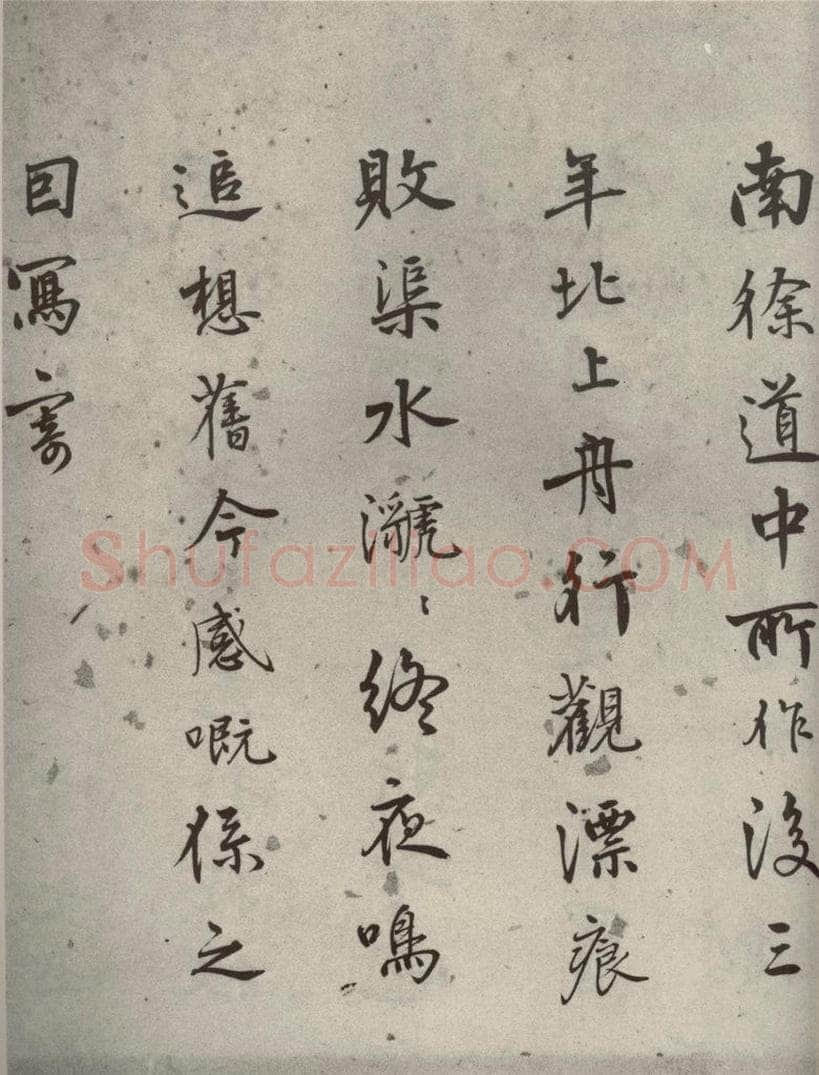 南徐道中所作後三
年北上舟行觀漂痕
敗渠水㶁〻終夜鳴
追想舊今感嘅係之
囙寫寄
Shufaziliao.COM